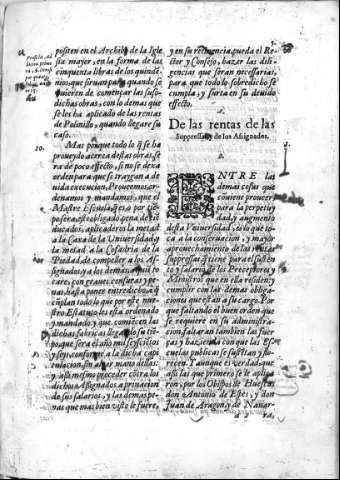 positen en el Archibo de la Igle
sia mayor, en la forma de las
cinquenta libras de los quinde-
nios, que siruan para quando se
huuieren de començar las suso-
dichas obras, con lo demas que
se les ha aplicado de las rentas
de Polinillo, quando llegare su
caso.
10.
Mas porque todo lo q̃ se ha
proueydo acerca destas obras, se
ra de poco effecto, si no se dexa
orden para que se traygan a de
uida execucion, Proueemos, or-
denamos, y mandamos, que el
Mestre Escuela, que es, o por tiẽ
po sera, este obligado pena de
ducados, aplicaderos la metad
a la Caxa de la Vniuersidad, y
la metad a la Cofadria de la
Piedad, de compeller a los As-
signados, y a los demas
care, con graues censuras, y pe-
nas, hasta poner entredicho, a q̃
cũplan todo lo que por este nue
stro Estatuto les esta ordenado
y mandado: y que comiencen las
dichas fabricas llegando su tiẽ-
po, que sera el año mil seyscientos
y seys, conforme a la dicha capi
tulacion, sin alçar mano dellas:
y assi mesmo preceder contra los
dichos Assignados a priuacion
de sus salarios, y las demas pe-
nas que mas bien visto le fuere,
y en su negligencia, pueda el Re-
ctor y Consejo, hazer las dili-
gencias que seran necessarias,
para que todo lo sobredicho se
cumpla, y surta en su deuido
effecto.
De las rentas de las
Suppressas, y de los Assignados.
1.
ENTRE las
demas cosas que
conuiene proueer
para la perpetuy
dad, y augmento
desta Vniuersidad, es lo que to-
ca a la conseruacion, y mayor
aprouechamiento de las rentas
suppressas, q̃ tiene para el susten
to y salario de los Preceptores, y
Ministros que en ella residen, y
cumplir con las demas obliga-
ciones que estan a su cargo. Por
que faltando el buen orden que
se requiere en su administra-
cion, faltaran tambien las fuer-
ças, y hazienda con que las Es-
cuelas publicas se sustẽtan y flo-
recen. Y aunque es verdad que
assi las que primero se le aplica
ron, por los Obispos de Huesca
don Antonio de Espes, y don
Iuan de Aragon, y de Nauar-
ra,